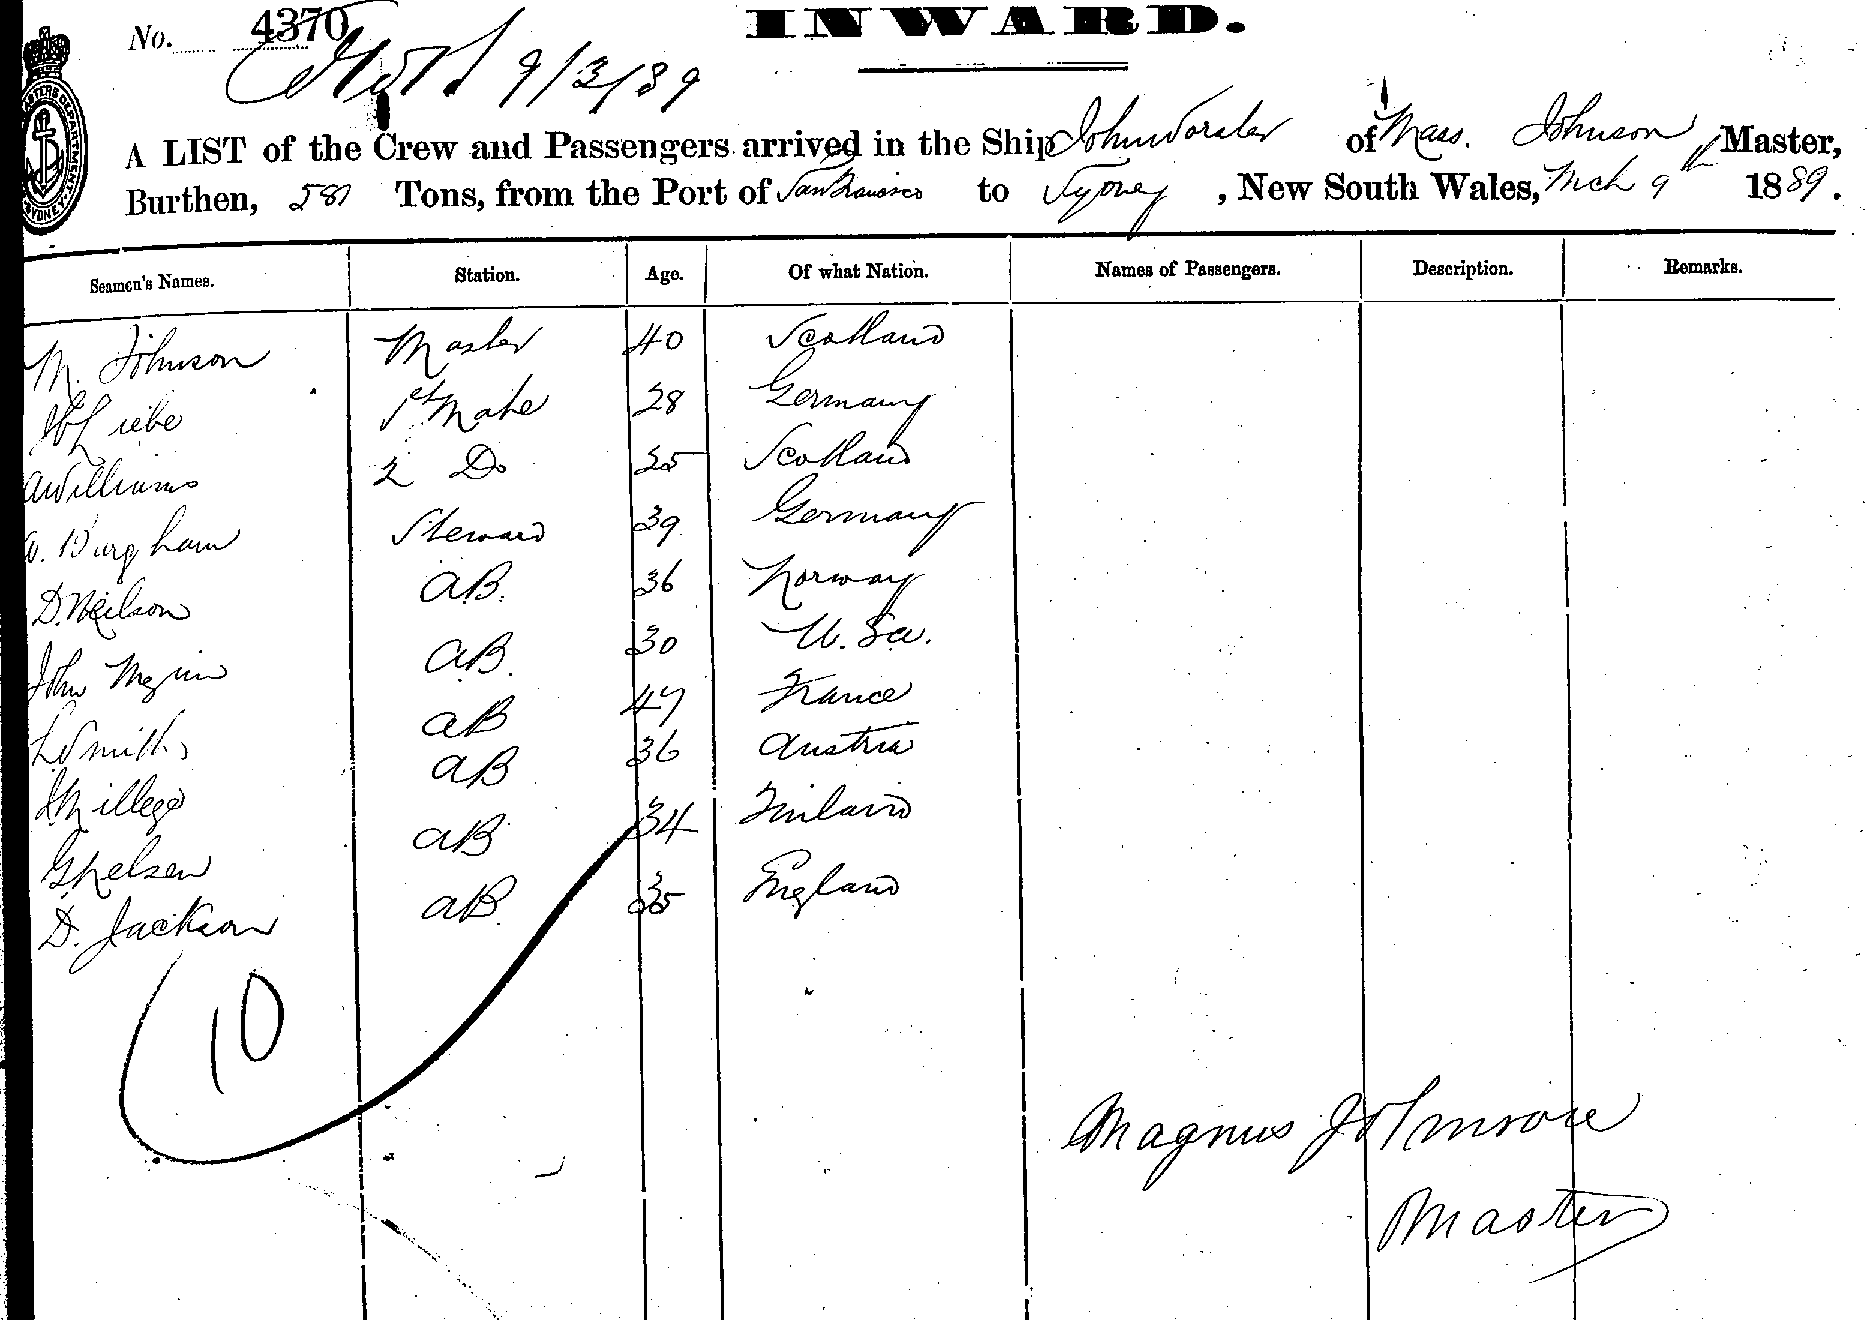 No. 4370 INWARD.
9/3/89
A LIST of the Crew and Passengers arrived in the Ship John Worster of Mass. Johnson Master,
Burthen, 581 Tons, from the Port of San Francisco to Sydney, New South Wales, Mch 9th 1889.
Seamen's Names. Station. Age. Of what Nation. Names of Passengers. Description. Remarks.
M. Johnson Master 40 Scotland
Liebe 1st Mate 28 Germany
A Williams 2 Do 25 Scotland
A. Burgham Steward 39 Germany
D. Neilson AB. 36 Norway
John AB. 30 U.Sa.
L Smith AB 47 France
AB 36 Austria
G Nelsen AB 34 Finland
D. Jackson AB. 35 England
10
Magnus Johnson
Master